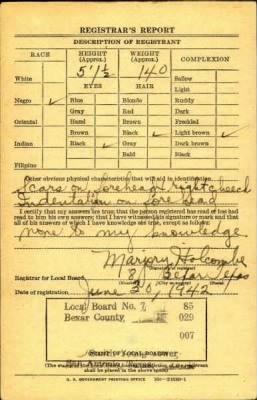 REGISTRAR'S REPORT
DESCRIPTION OF REGISTRANT
RACE HEIGHT (Approx.) WEIGHT (Approx.) COMPLEXION
5'1½ 140
White Sallow
EYES HAIR Light
Negro ✓ Blue Blonde Ruddy
Gray Red Dark
Oriental Hazel Brown Freckled
Brown Black ✓ Light brown ✓
Indian Black ✓ Gray Dark brown
Bald Black
Filipino
Other obvious physical characteristics that will aid in identification
Scars on forehead right cheeck
Indentation on fore head
I certify that my answers are true; that the person registered has read or has had
read to him his own answers; that I have witnessed his signature or mark and that
all of his answers of which I have knowledge are true, except as follows:
none to my knowledge
Marjory Holcombe
Registrar for Local Board 8 Bexar Texas
Date of registration June 30, 1942
Local Board No. 7 85
Bexar County 029
007
Tower
San Antonio, Texas
(STAMP OF LOCAL BOARD)
(The stamp of the Local Board having jurisdiction of the registrant
shall be placed in the above space)
U. S. GOVERNMENT PRINTING OFFICE